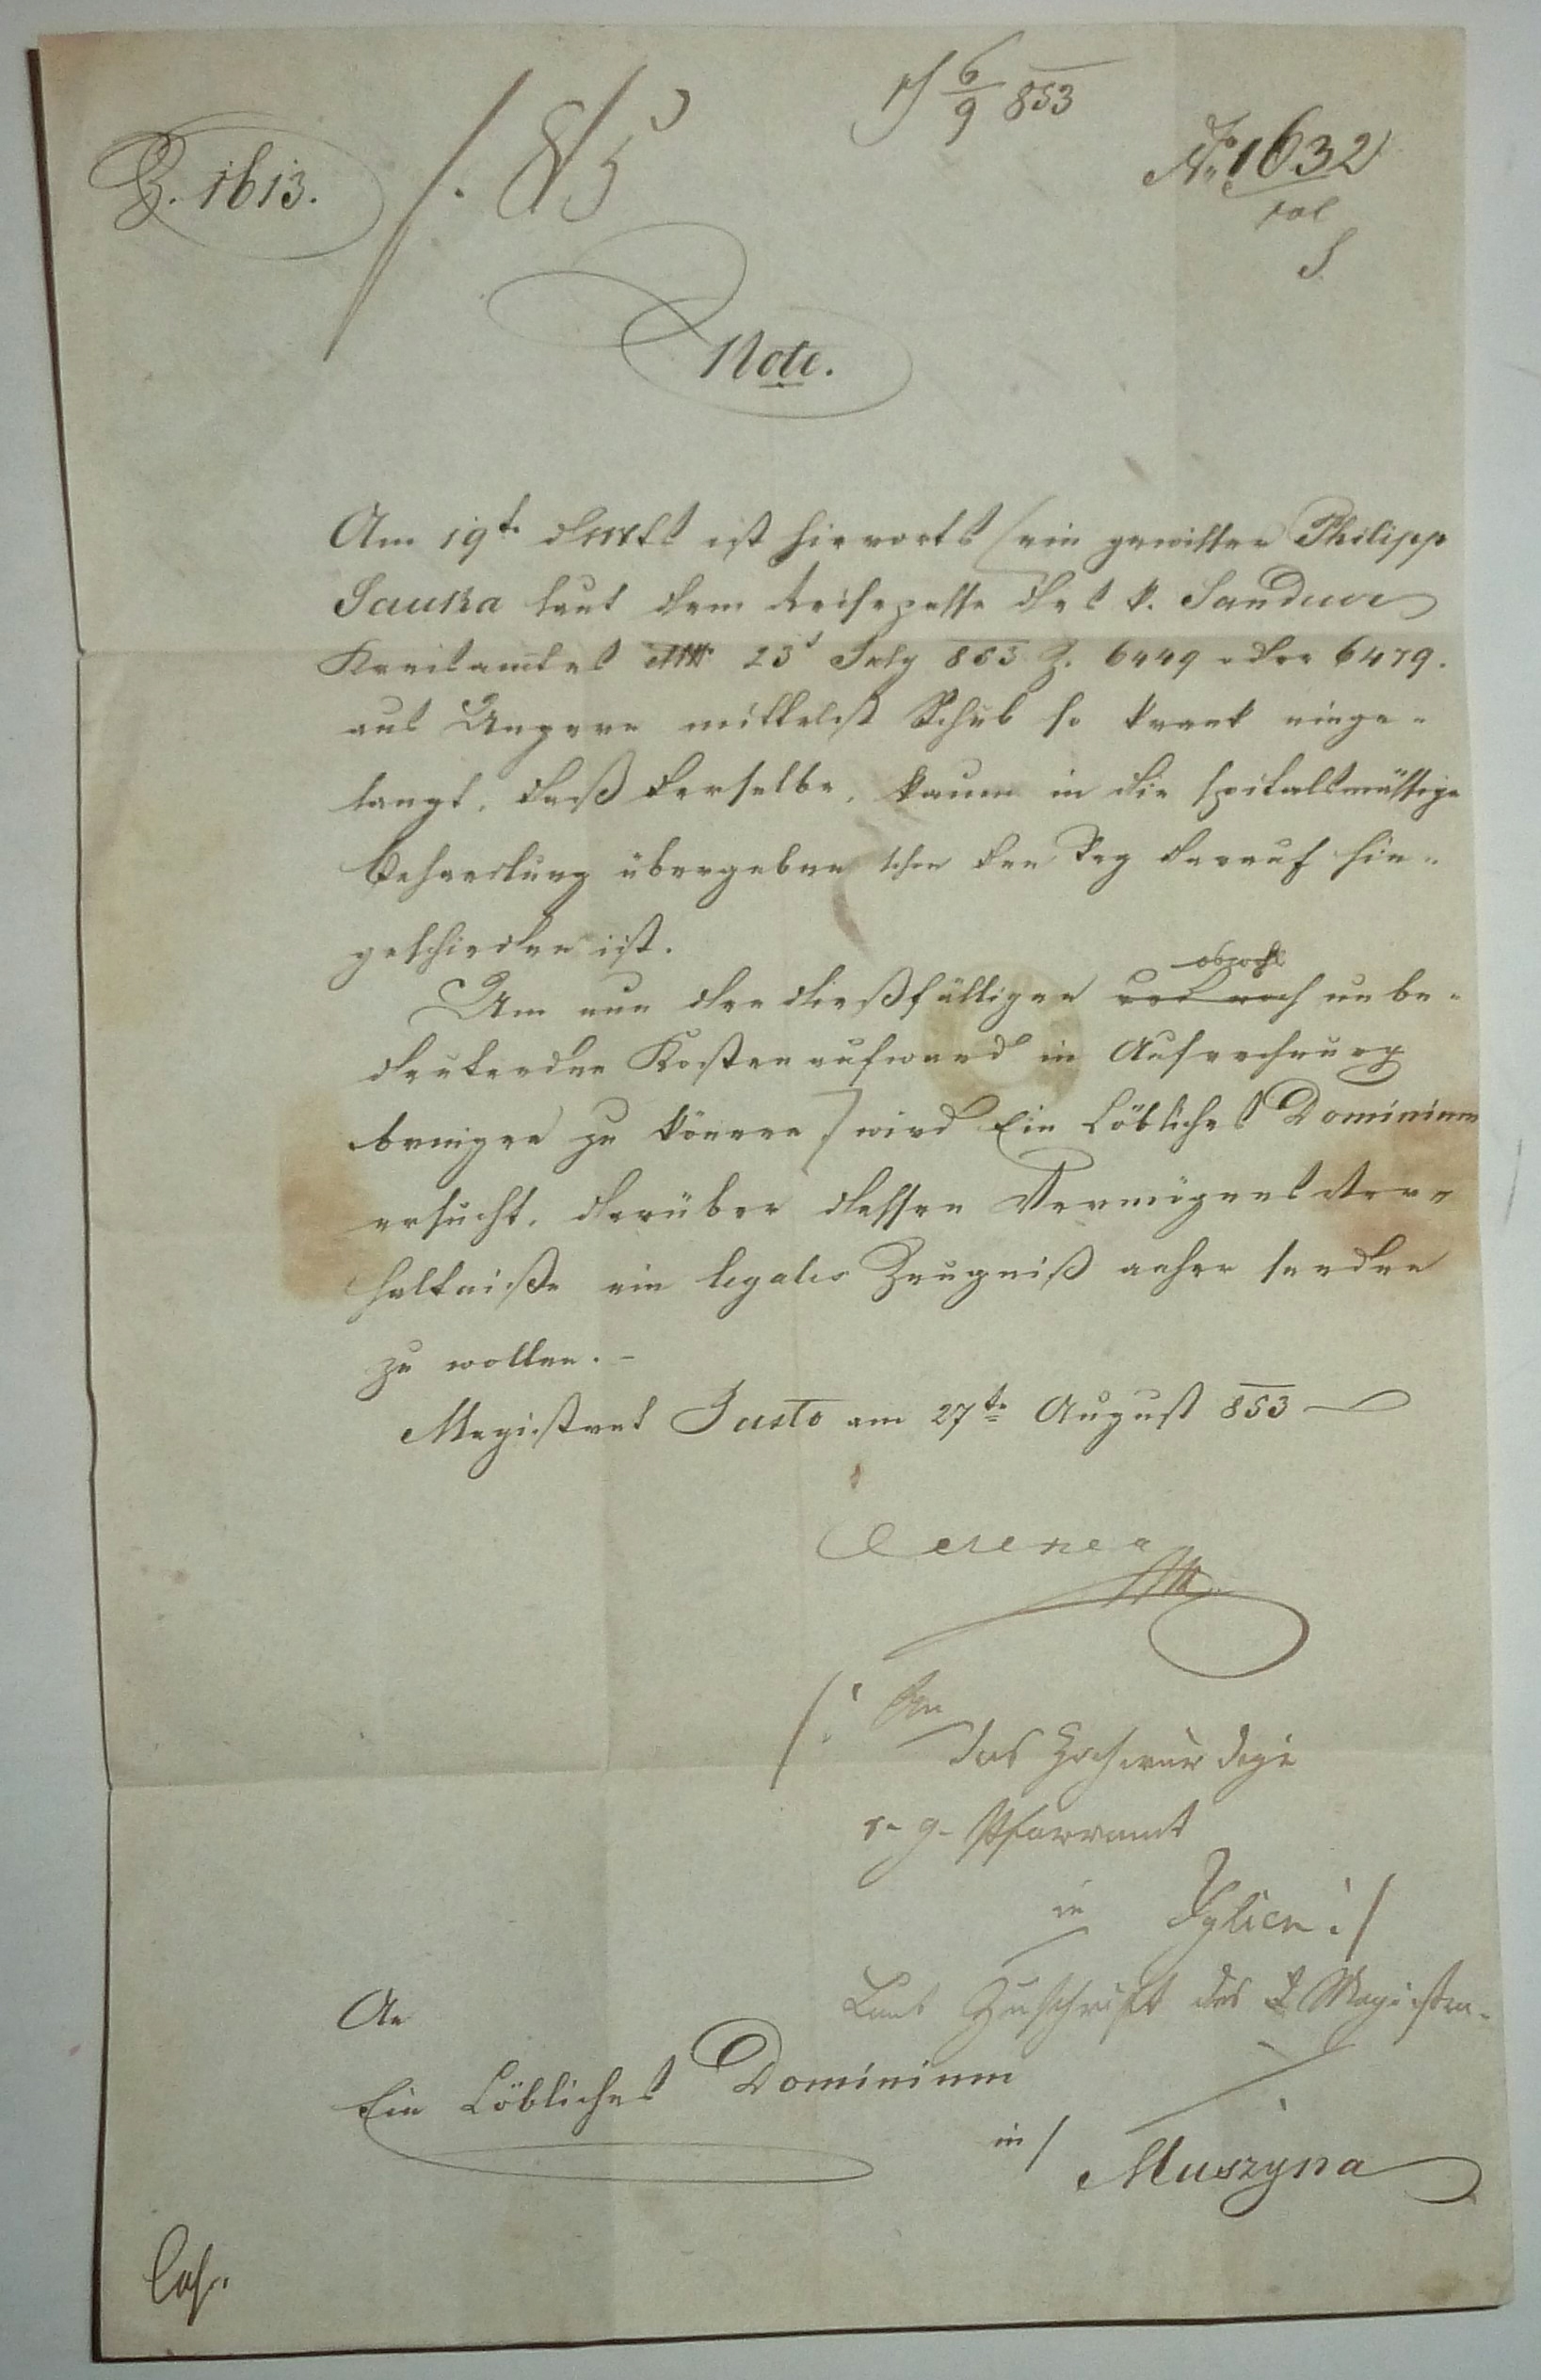 6/9 853
Z. 1613.
/. 85
No 1632
pol
Note.
Am 19t. ist hierorts ein gewisser Philipp
Sauka laut dem Reisepasse des k. Sandecer
Kreisamtes 23t July 853 Z. 6449 oder 6479.
aus Ungarn mittelst Schub so krank einge-
langt, daß derselbe, kaum in die spitalsmässige
Behandlung übergeben schon den Tag darauf hin-
geschieden ist.
obwohl
Um nun den dießfälligen unbe-
deutenden Kostenaufwand in Aufrechnung
bringen zu können, wird Ein Löbliches Dominium
ersucht, darüber dessen Vermögensver-
hältniße ein legales Zeugniß anher senden
zu wollen. -
Magistrat Jasło am 27te August 853
/: An
das Hochwürdige
r. g. Pfarramt
in :/
Laut Zuschrift des Magistra-
An
Ein Löbliches Dominium
in / Muszyna